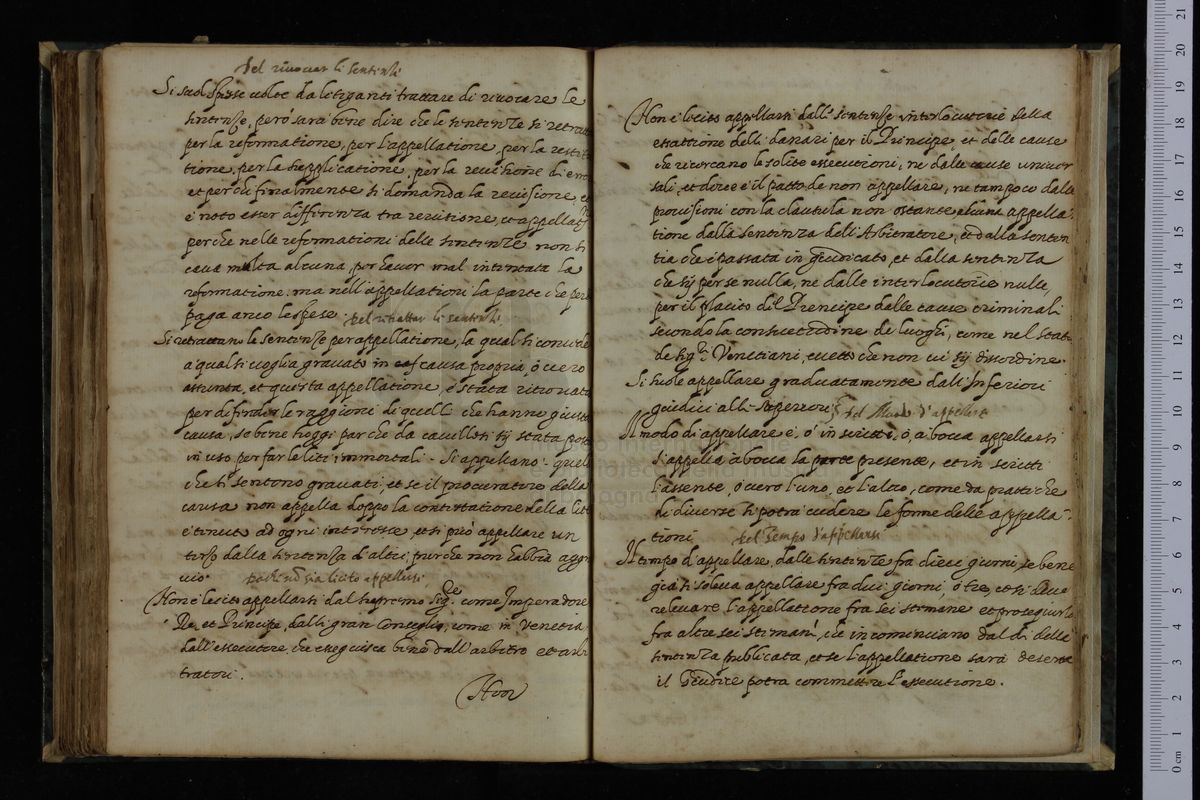 Del rivocar li sentenze
Si suol spesse volte da litiganti trattare di rivocare le
sentenze, però sarà bene dire che le sentenze si retrat
per la reformatione, per l'appellatione, per la restit
tione, per la supplicatione, per la revisione di erro
et perciò finalmente si domanda la revisione, e
è noto esser differenza tra revisione, et appellat
perche nelle reformationi delle sentenze non si
cava multa alcuna, per haver mal intentata la
reformatione, ma nell'appellationi la parte che per
paga anco le spese.
Del ritrattar li sentenze
Si retrattano le sentenze per appellatione, la qual si concede
a qual si voglia gravato in causa propria, ò vero
assunta, et questa appellatione è stata ritrovata
per difender le raggioni di quelli che hanno giusta
causa, se bene hoggi par che da cavillosi sij stata posta
in uso per far le liti immortali. Si appellano quelli
che si sentono gravati, et se il procuratore della
causa non appella doppo la contestatione della lite
è tenuto ad ogni interesse, et si può appellare un
terzo dalla sentenza d'altri, purche non habbia aggra
vio.
sia licito appellarsi
Non è lecito appellarsi dal supremo Sigre. come Imperadore
Re, et Principe, dalli gran Conseglio, come in Venetia
dall'essecutore, che esequisca bene, dall'arbitro et arbi
tratori.
Non
Non è lecito appellarsi dalle sentenze interlocutorie della
essattione delli danari per il Principe, et delle cause
che ricercano le solite essecutioni, ne dalle cause univer
sali, et dove è il patto de non appellare, ne tampoco dalle
provisioni con la clausula non ostante alcuna appella-
tione dalla sentenza dell'Arbitratore, et dalla senten
tia che è passata in giudicato, et dalla sentenza
che sij per se nulla, ne dalle interlocutorie nulle,
per il placito del Prencipe dalle cause criminali
secondo la consuetudine de luoghi, come nel stato
de Sigri. Venetiani, eccetto che non vi sij dissordine.
Si suole appellare graduatamente dall'Inferiori
giudici alli superiori
Del Modo d'appellare
Il modo di appellare è, ò in scritti, ò, à bocca appellarsi
s'appella à bocca la parte presente, et in scritti
l'assente, ò vero l'uno, et l'altro, come da prattiche
di diverse si potrà vedere le forme delle appella-
tioni
Del Tempo d'appellarsi
Il tempo d'appellare, dalle sentenze fra dieci giorni, se bene
già si soleva appellare fra duci giorni, ò tre, et si deve
relevare l'appellatione fra sei stimane et proseguirla
fra altre sei stimani, che incominciano dal di della
sentenza publicata, et se l'appellatione sarà deserta
il Giudice potrà commettere l'essecutione.